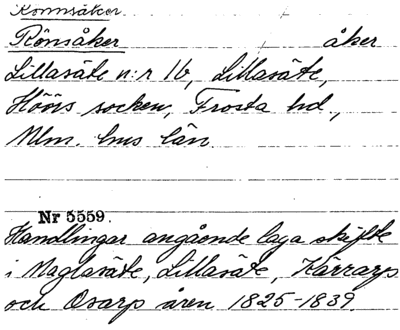 Konnsåker
Rönsåker åker
Lillasäte n:r 16, Lillasäte,
Höörs socken, Frosta hd.,
Mlm. hus län.
Nr 5559.
Handlingar angående laga skifte
i Maglasäte, Lillasäte, Kärrarp
och Osarp åren 1825-1839.